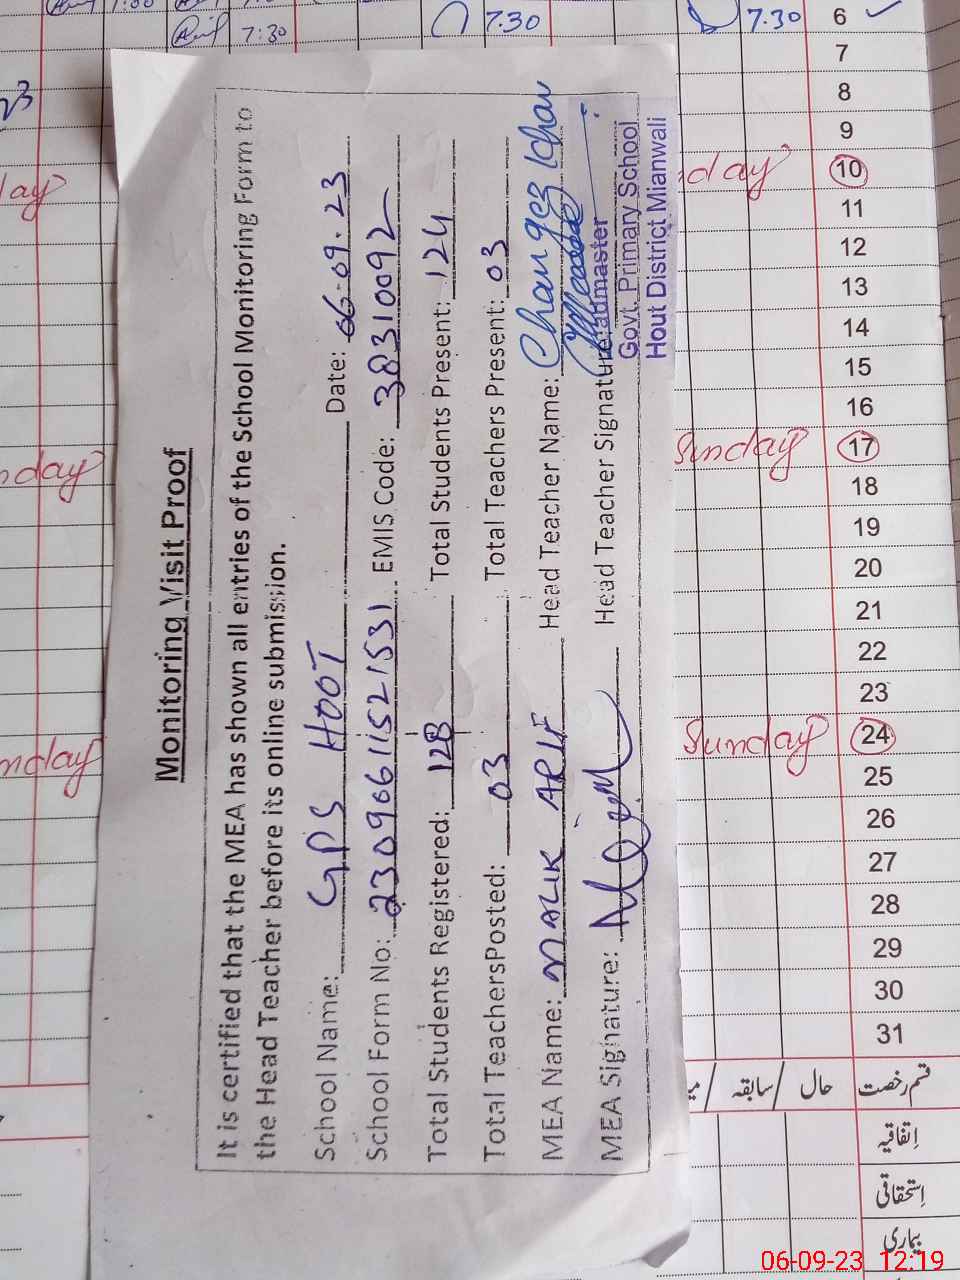 7.30
7.30
7:30
Monitoring Visit Proof
It is certified that the MEA has shown all entries of the School Monitoring Form to
the Head Teacher before its online submission.
School Name: GPS HOOT Date: 06-09.23
School Form No: 23096611521531 EMIS Code: 38310092
Total Students Registered: 128 Total Students Present: 124
Total TeachersPosted: 03 Total Teachers Present: 03
MEA Name: MALIK ARIF Head Teacher Name: Changez Khan
MEA Signature: Head Teacher Signature:
Headmaster
Govt. Primary School
Hout District Mianwali
6
7
8
9
day 10
11
12
13
14
15
16
Sunday 17
18
19
20
21
22
23
Sunday 24
25
26
27
28
29
30
31
قسم رخصت حال / سابقہ /
اِتفاقیہ
اِستحقاقی
بیماری
06-09-23 12:19